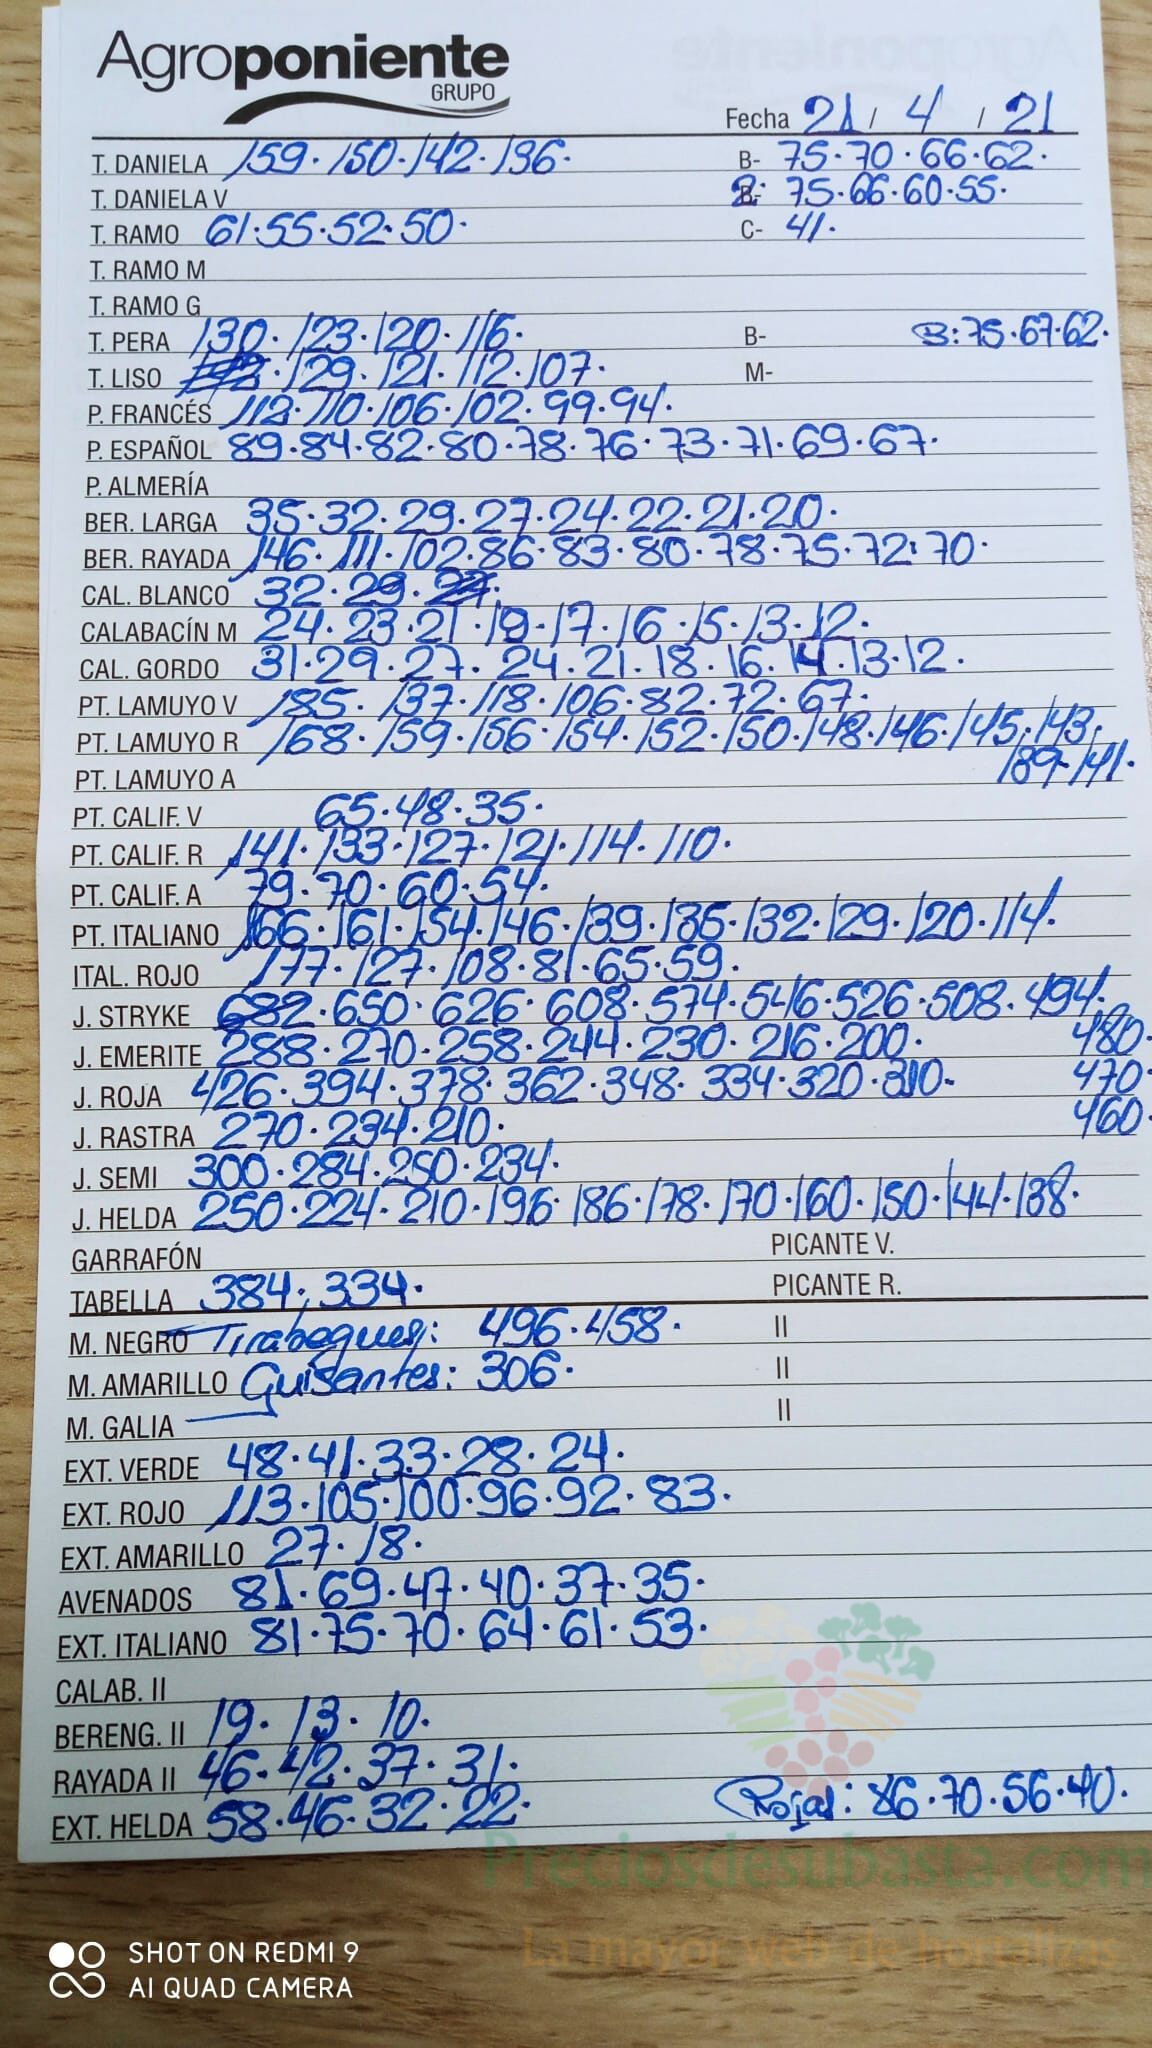 Agroponiente
GRUPO
Fecha 21 / 4 / 21
T. DANIELA 159. 150. 142. 136. B- 75. 70. 66. 62.
T. DANIELA V 2: 75. 66. 60. 55.
T. RAMO 61. 55. 52. 50. C- 41.
T. RAMO M
T. RAMO G
T. PERA 130. 123. 120. 116. B- B: 75. 67. 62.
T. LISO 129. 121. 112. 107. M-
P. FRANCÉS 112. 110. 106. 102. 99. 94.
P. ESPAÑOL 89. 84. 82. 80. 78. 76. 73. 71. 69. 67.
P. ALMERÍA
BER. LARGA 35. 32. 29. 27. 24. 22. 21. 20.
BER. RAYADA 146. 111. 102. 86. 83. 80. 78. 75. 72. 70.
CAL. BLANCO 32. 29.
CALABACÍN M 24. 23. 21. 19. 17. 16. 15. 13. 12.
CAL. GORDO 31. 29. 27. 24. 21. 18. 16. 14. 13. 12.
PT. LAMUYO V 185. 137. 118. 106. 82. 72. 67.
PT. LAMUYO R 168. 159. 156. 154. 152. 150. 148. 146. 145. 143.
PT. LAMUYO A 141.
PT. CALIF. V 65. 48. 35.
PT. CALIF. R 141. 133. 127. 121. 114. 110.
PT. CALIF. A 79. 70. 60. 54.
PT. ITALIANO 166. 161. 154. 146. 139. 135. 132. 129. 120. 114.
ITAL. ROJO 177. 127. 108. 81. 65. 59.
J. STRYKE 682. 650. 626. 608. 574. 546. 526. 508. 494.
J. EMERITE 288. 270. 258. 244. 230. 216. 200. 480.
J. ROJA 426. 394. 378. 362. 348. 334. 320. 310. 470.
J. RASTRA 270. 234. 210. 460.
J. SEMI 300. 284. 250. 234.
J. HELDA 250. 224. 210. 196. 186. 178. 170. 160. 150. 144. 138.
GARRAFÓN PICANTE V.
TABELLA 384. 334. PICANTE R.
M. NEGRO Tirabeques: 496. 458. II
M. AMARILLO Guisantes: 306. II
M. GALIA II
EXT. VERDE 48. 41. 33. 28. 24.
EXT. ROJO 113. 105. 100. 96. 92. 83.
EXT. AMARILLO 27. 18.
AVENADOS 81. 69. 47. 40. 37. 35.
EXT. ITALIANO 81. 75. 70. 64. 61. 53.
CALAB. II
BERENG. II 19. 13. 10.
RAYADA II 46. 42. 37. 31.
EXT. HELDA 58. 46. 32. 22. Rojas: 86. 70. 56. 40.
Preciosdesubasta.com
La mayor web de hortalizas
SHOT ON REDMI 9
AI QUAD CAMERA